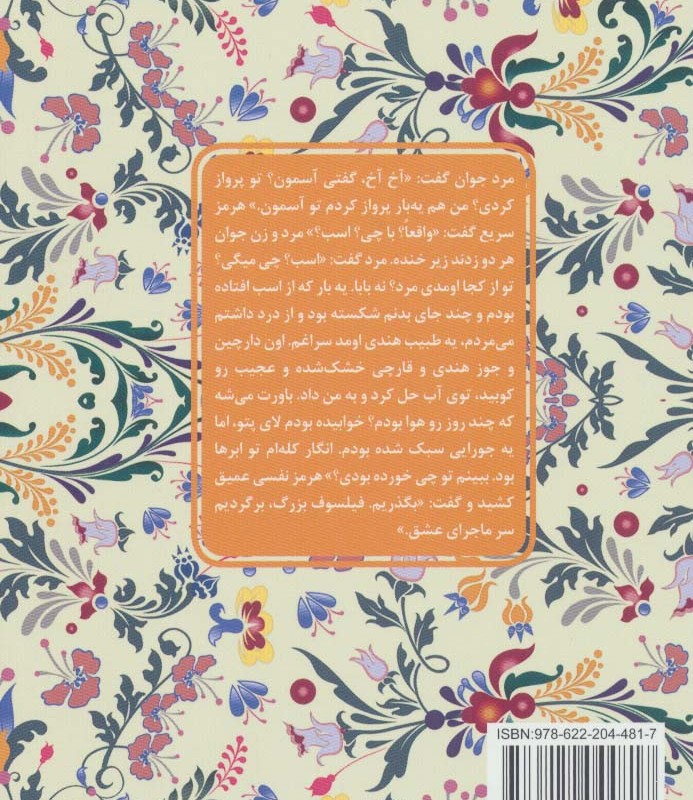 مرد جوان گفت: «آخ آخ، گفتی آسمون؟ تو پرواز
کردی؟ من هم یه‌بار پرواز کردم تو آسمون.» هرمز
سریع گفت: «واقعاً؟ با چی؟ اسب؟» مرد و زن جوان
هر دو زدند زیر خنده. مرد گفت: «اسب؟ چی میگی؟
تو از کجا اومدی مرد؟ نه بابا. یه بار که از اسب افتاده
بودم و چند جای بدنم شکسته بود و از درد داشتم
می‌مردم، یه طبیب هندی اومد سراغم. اون دارچین
و جوز هندی و قارچی خشک‌شده و عجیب رو
کوبید، توی آب حل کرد و به من داد. باورت می‌شه
که چند روز رو هوا بودم؟ خوابیده بودم لای پتو، اما
یه جورایی سبک شده بودم. انگار کله‌ام تو ابرها
بود. ببینم تو چی خورده بودی؟» هرمز نفسی عمیق
کشید و گفت: «بگذریم. فیلسوف بزرگ، برگردیم
سر ماجرای عشق.»
ISBN:978-622-204-481-7